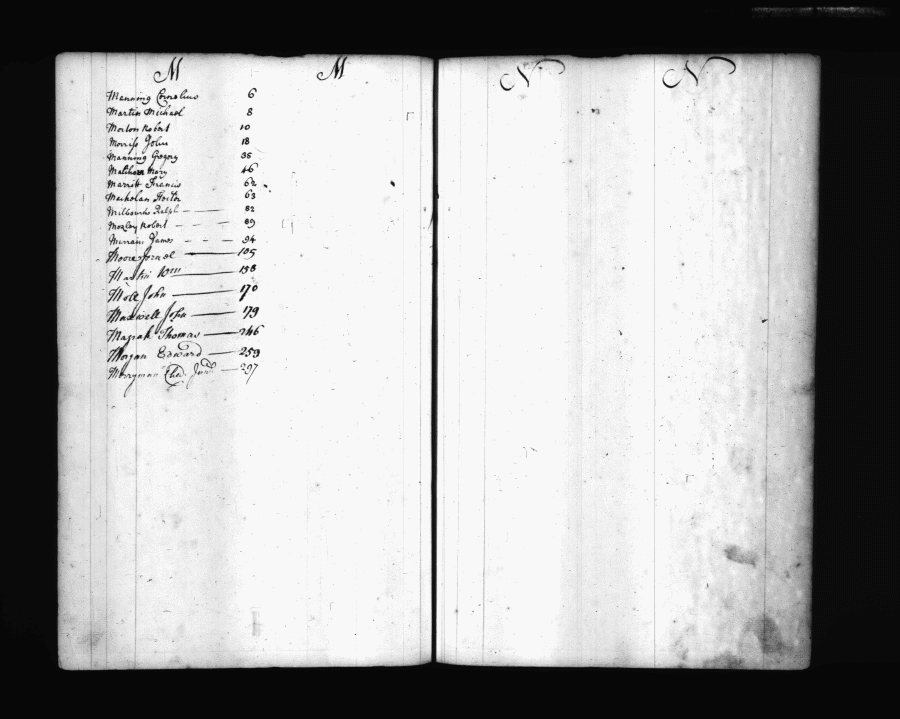 M
M
Manning Cornelius 6
Martin Michael 8
Morton Robert 10
Morriss John 18
Manning Gregory 35
Mary 46
Marritt Francis 62
Hector 63
Ralph 82
Mozley Robert 89
James 94
Moore Israel 105
Martin Wm 158
Mole John 170
Maxwell John 179
Thomas 246
Morgan Edward 259
Merryman Junr 297
N
N